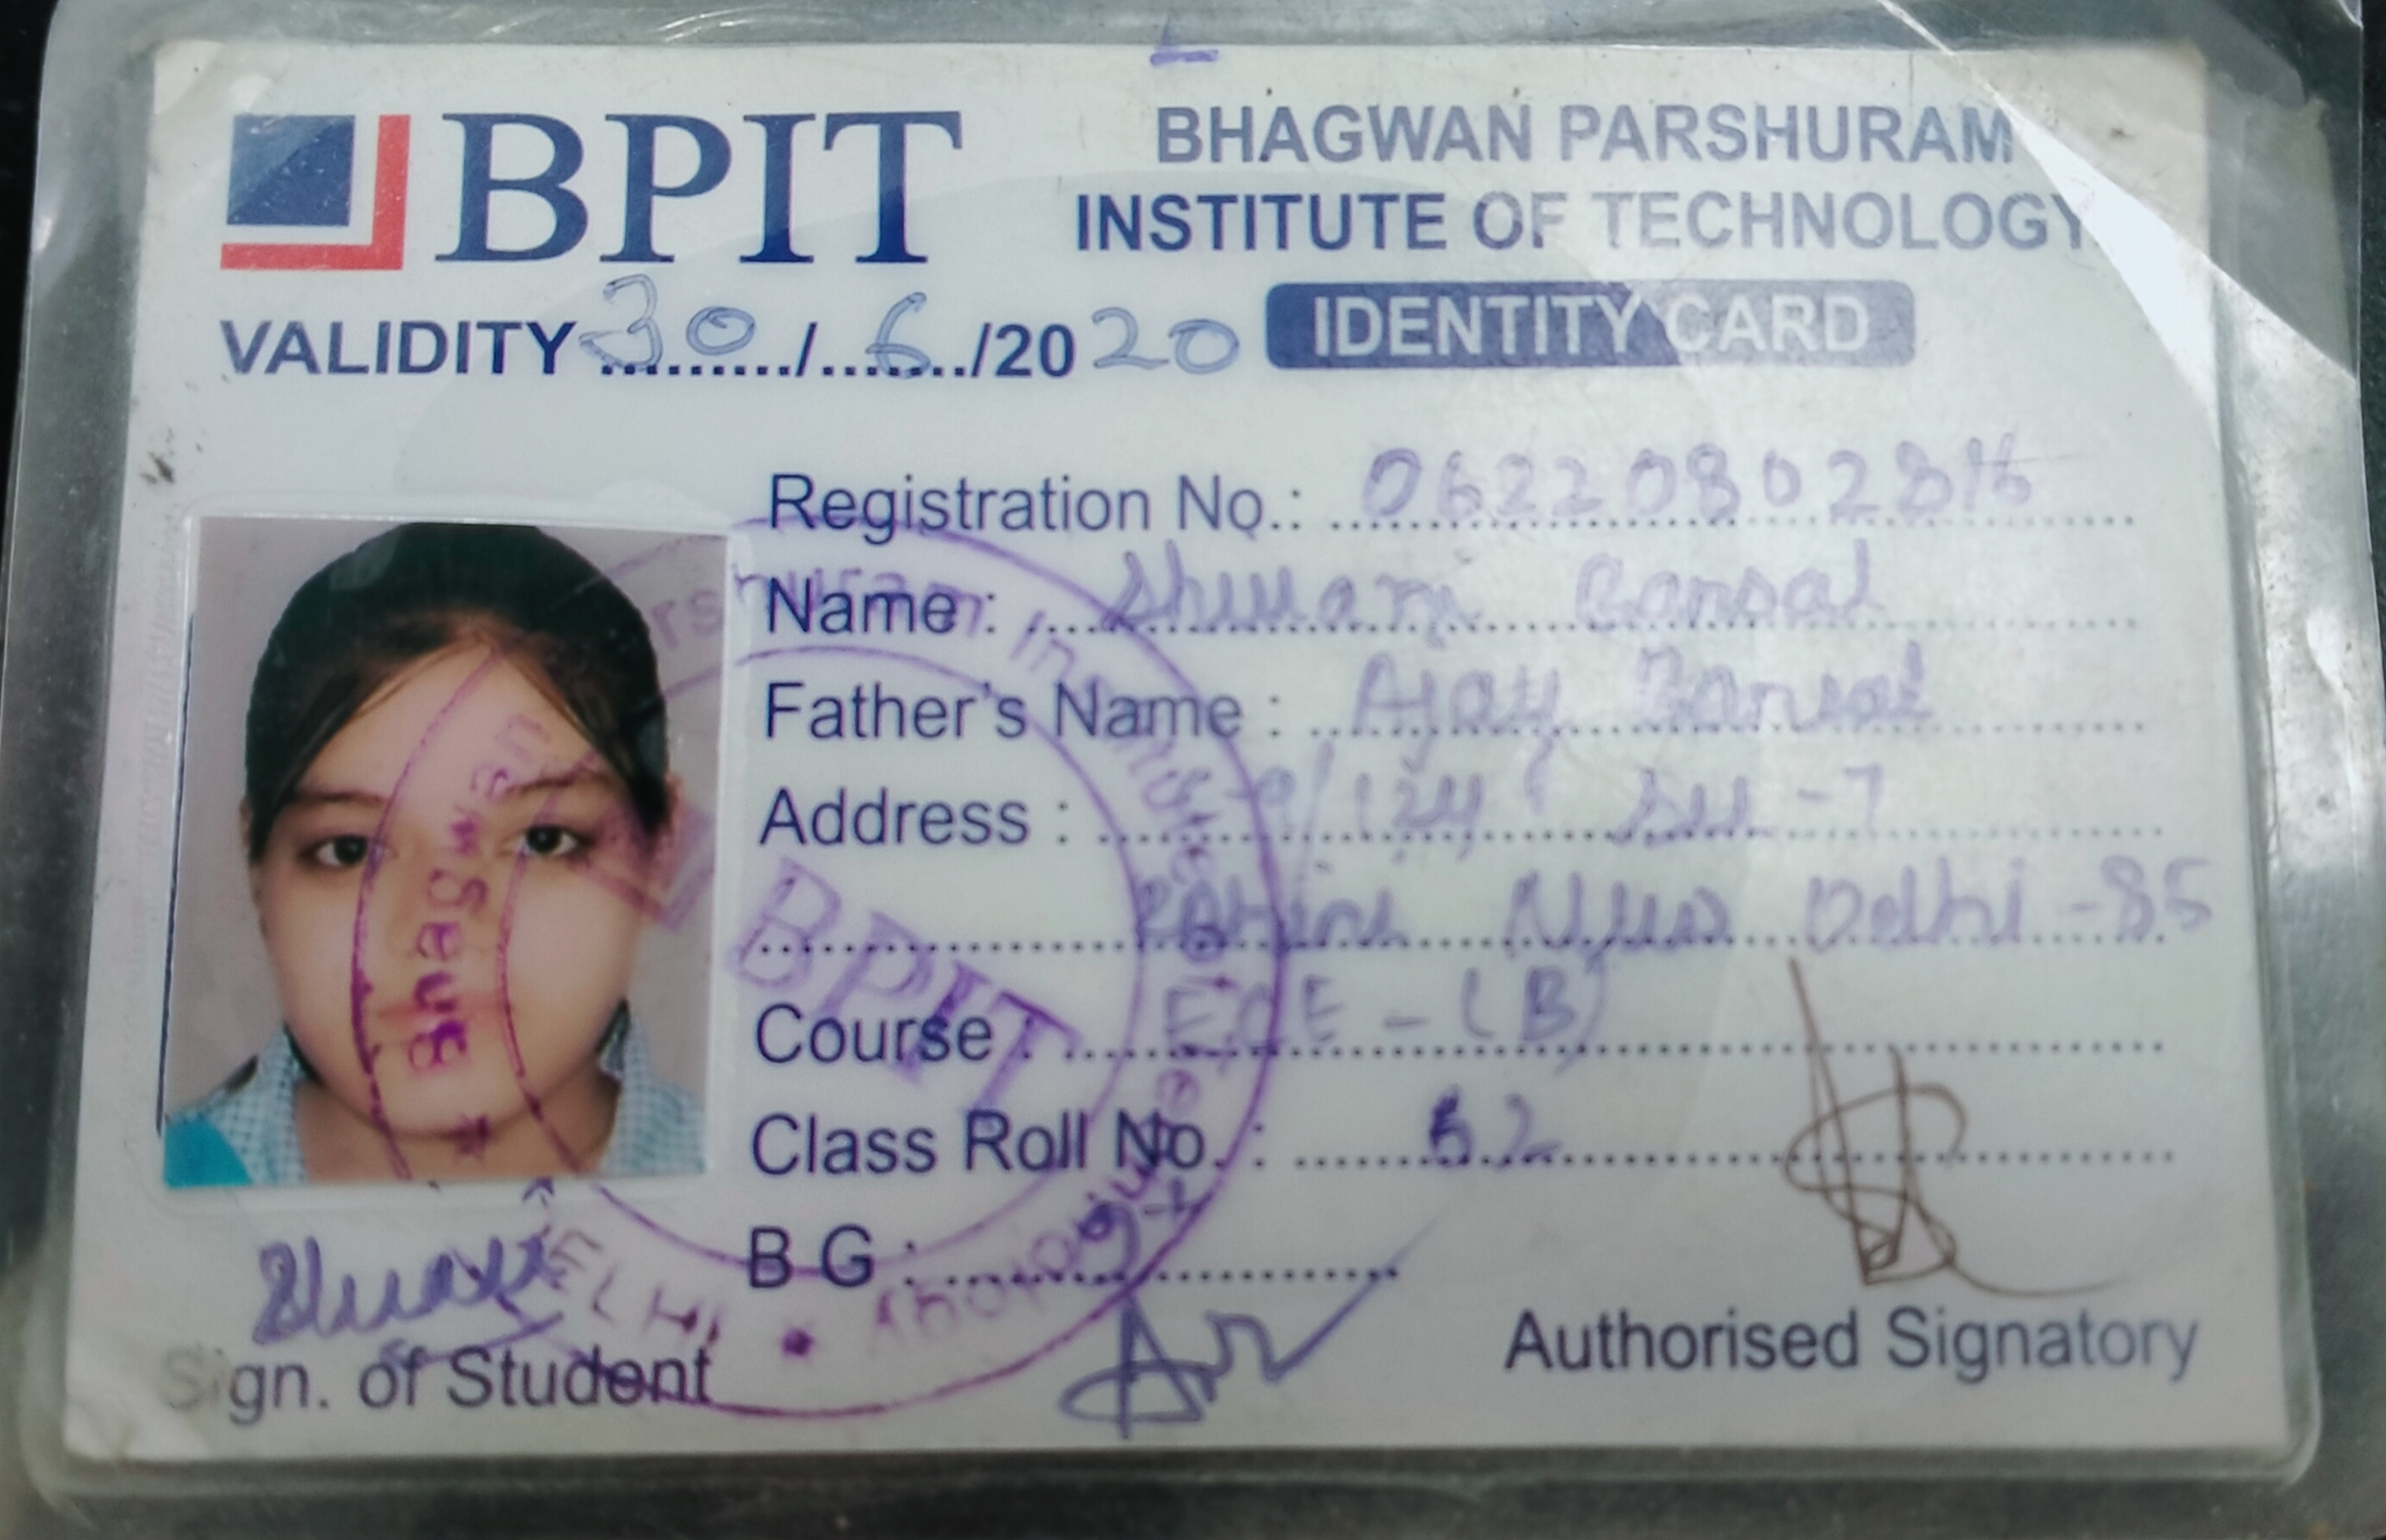 BPIT
BHAGWAN PARSHURAM
INSTITUTE OF TECHNOLOGY
VALIDITY 30/6/2020
IDENTITY CARD
Registration No.: 06220802816
Name : Shivani Bansal
Father's Name : Ajay Bansal
Address : /124 Sec-7
Rohini New Delhi -85
Course : ECE - (B)
Class Roll No. : 62
B G :
Sign. of Student
Authorised Signatory
BPIT